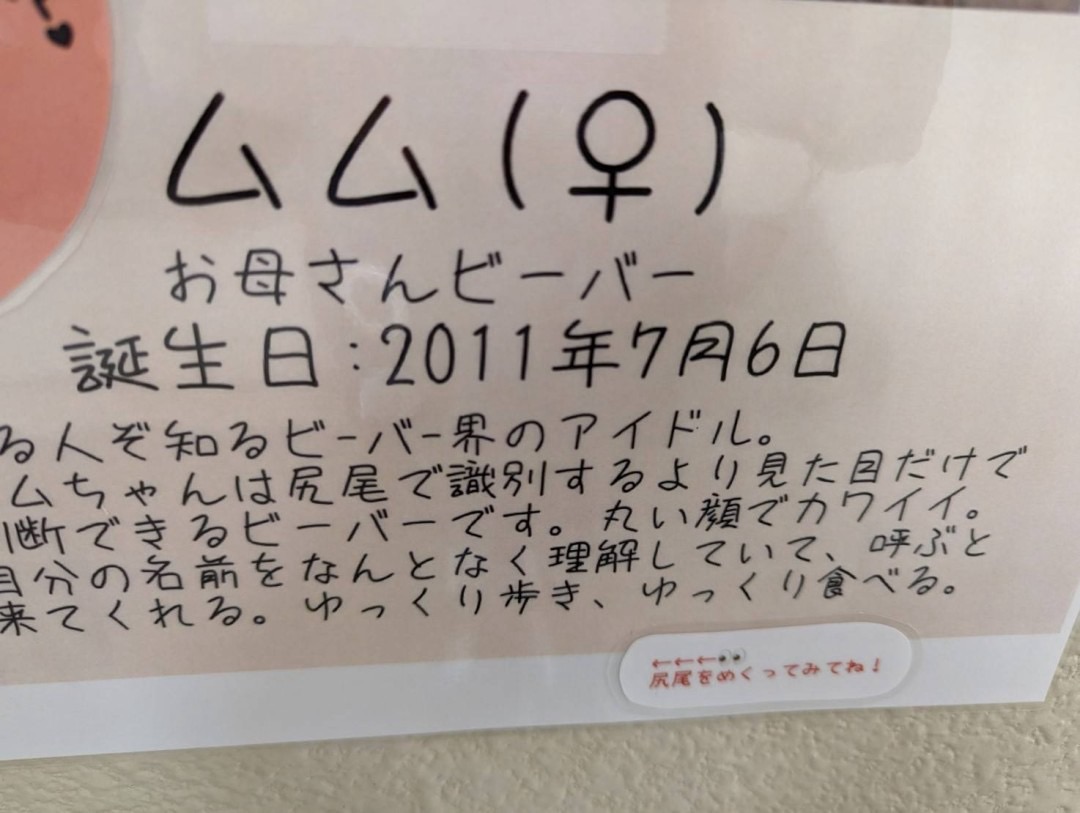 ムム(♀)
お母さんビーバー
誕生日:2011年7月6日
る人ぞ知るビーバー界のアイドル。
ムちゃんは尻尾で識別するより見た目だけで
断できるビーバーです。丸い顔でカワイイ。
自分の名前をなんとなく理解していて、呼ぶと
来てくれる。ゆっくり歩き、ゆっくり食べる。
←←←👀
尻尾をめくってみてね!